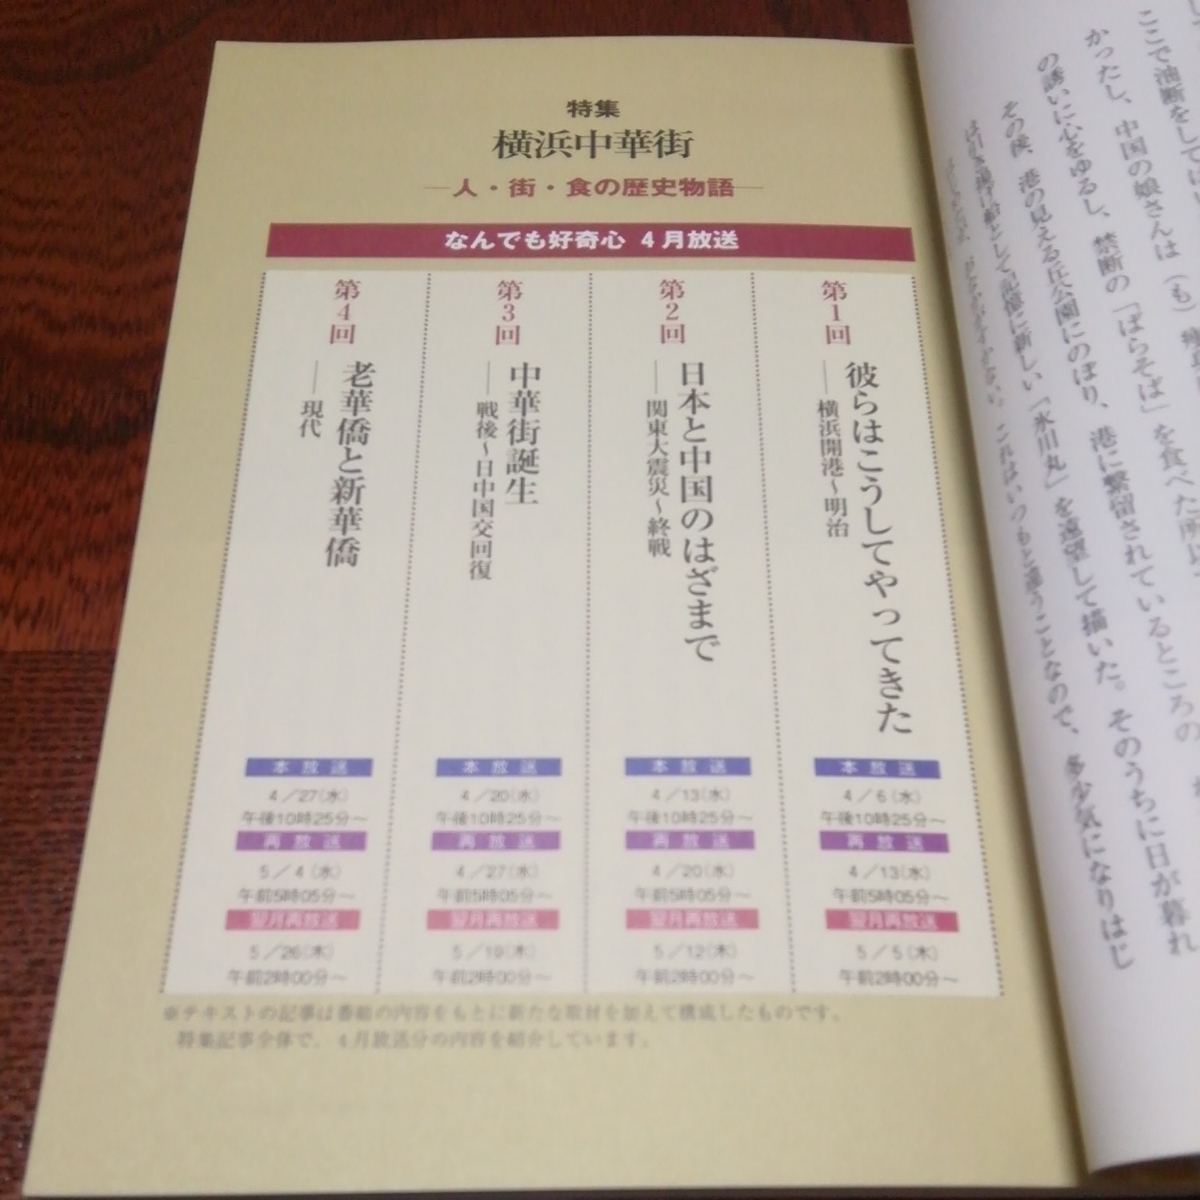 特集
横浜中華街
―人・街・食の歴史物語―
なんでも好奇心 4月放送
第1回
彼らはこうしてやってきた
―横浜開港~明治
本放送
4/6(水)
午後10時25分~
再放送
4/13(水)
午前5時05分~
翌月再放送
5/5(木)
午前2時00分~
第2回
日本と中国のはざまで
―関東大震災~終戦
本放送
4/13(水)
午後10時25分~
再放送
4/20(水)
午前5時05分~
翌月再放送
5/12(木)
午前2時00分~
第3回
中華街誕生
―戦後~日中国交回復
本放送
4/20(水)
午後10時25分~
再放送
4/27(水)
午前5時05分~
翌月再放送
5/19(木)
午前2時00分~
第4回
老華僑と新華僑
―現代
本放送
4/27(水)
午後10時25分~
再放送
5/4(水)
午前5時05分~
翌月再放送
5/26(木)
午前2時00分~
※テキストの記事は番組の内容をもとに新たな取材を加えて構成したものです。
特集記事全体で、4月放送分の内容を紹介しています。
ここで油断をしては
かったし、中国の娘さんは(も)
禁断の「ばらそば」を食べた所
の誘いに心をゆるし、
港に繋留されているところの
その後、港の見える丘公園にのぼり、
「氷川丸」を遠望して描いた。そのうちに日が暮れ
は引き揚げ船として記憶に新しい
これはいつもと違うことなので、多少気になりはじ